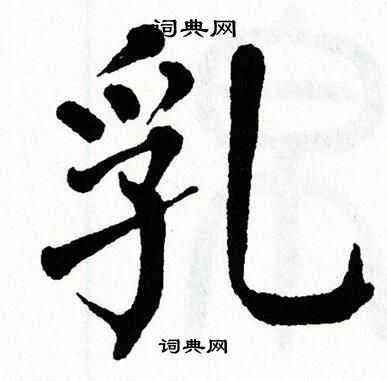 词典网
乳
词典网